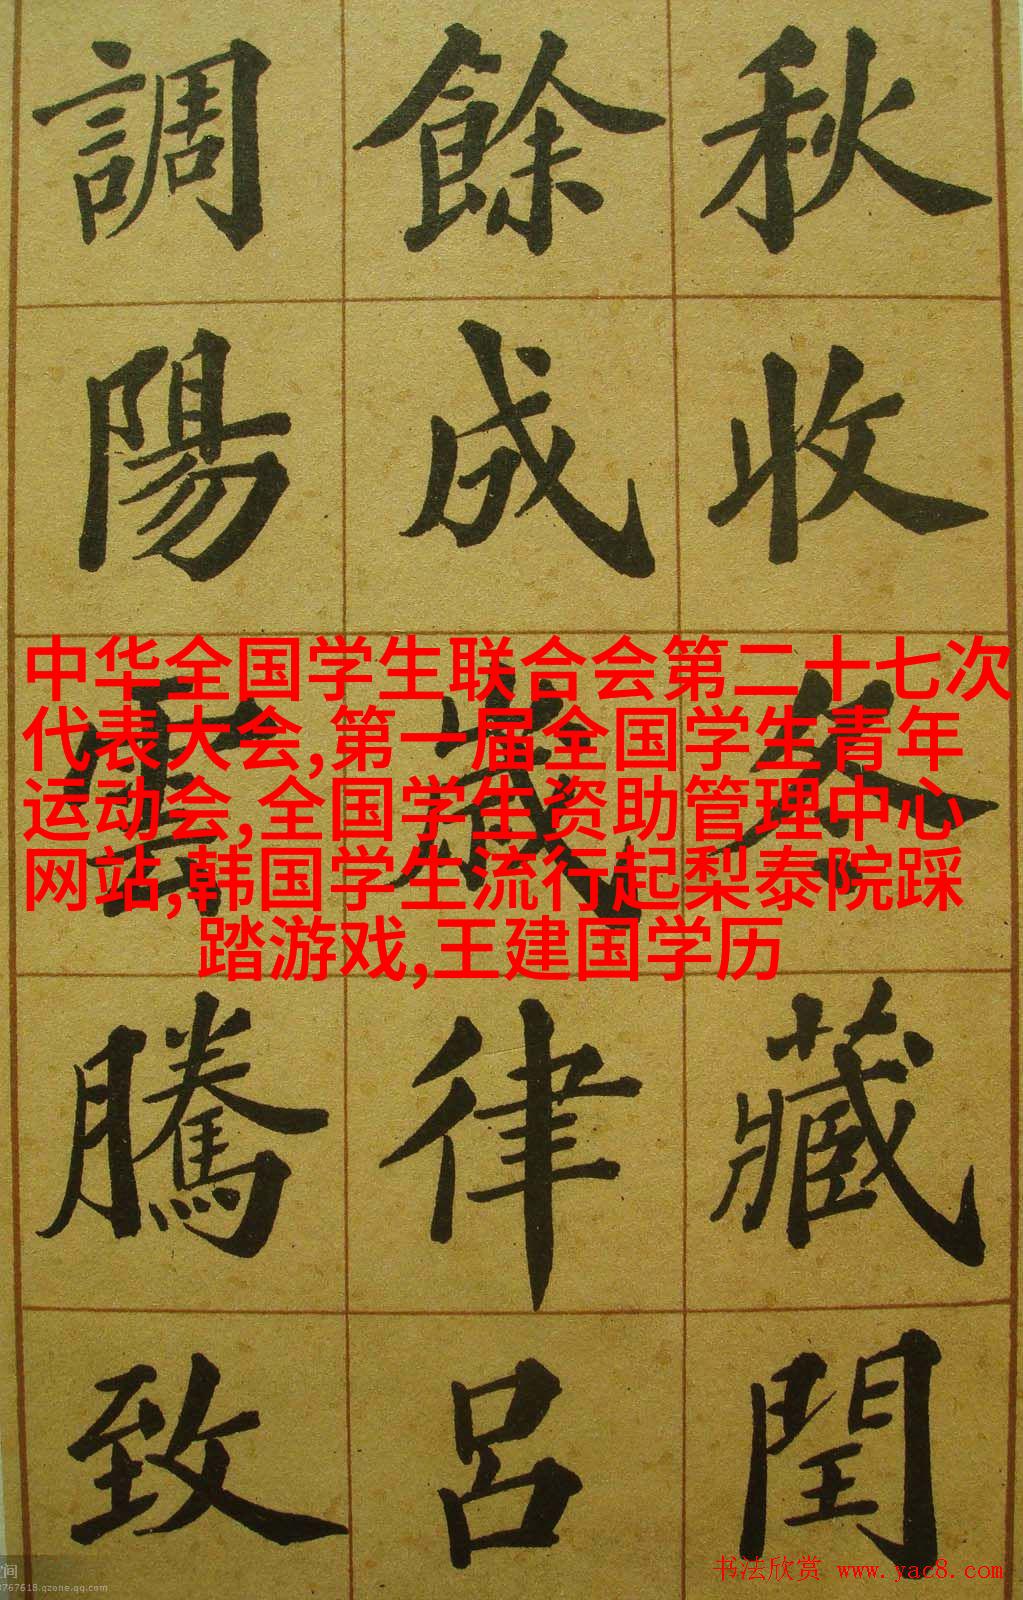 秋收冬藏閏
餘成歲律呂
調陽雲騰致
中华全国学生联合会第二十七次
代表大会,第一届全国学生青年
运动会,全国学生资助管理中心
网站,韩国学生流行起梨泰院踩
踏游戏,王建国学历
书法欣赏 www.yac8.com
间
767618.qzone.qq.com